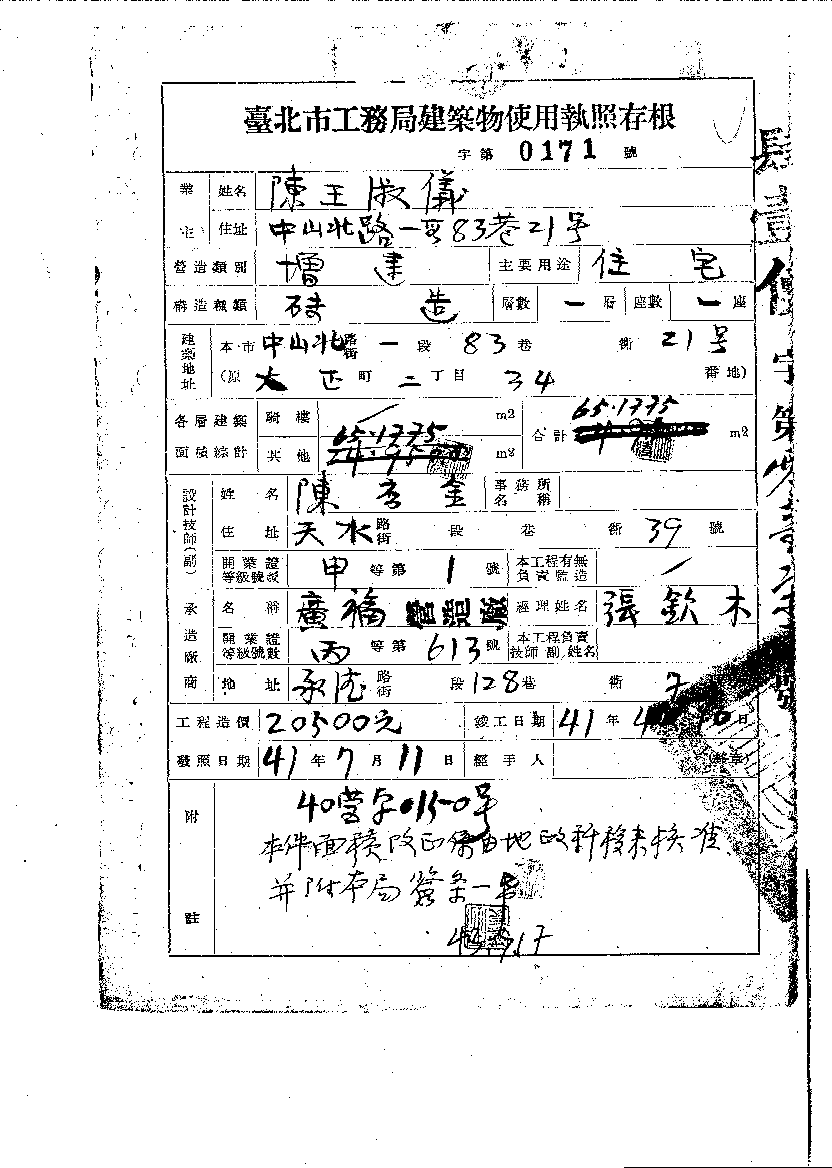 臺北市工務局建築物使用執照存根
字第 0171 號
業主 姓名 陳王淑儀
住址 中山北路一段83巷21号
營造類別 增建 主要用途 住宅
構造種類 磚造 層數 一層 座數 一座
建築地址 本市中山北路街一段83巷 衖21号
(原大正町二丁目34番地)
各層建築面積綜計 騎樓 m2 合計 65.1775 m2
其他 65.1775 m2
設計技師(副) 姓名 陳李金 事務所名稱
住址 天水路街 段 巷 衖 39 號
開業證等級號數 甲等第1號 本工程有無負責監造
承造廠商 名稱 廣福營造廠 經理姓名 張欽木
開業證等級號數 丙等第613號 本工程負責技師副姓名
地址 承德路街 段128巷 衖
工程造價 20500元 竣工日期 41年 10日
發照日期 41年7月11日 經手人 (簽章)
附註 40營字0150号
本件面積改正係由地政科移來核准
并附本局簽条一